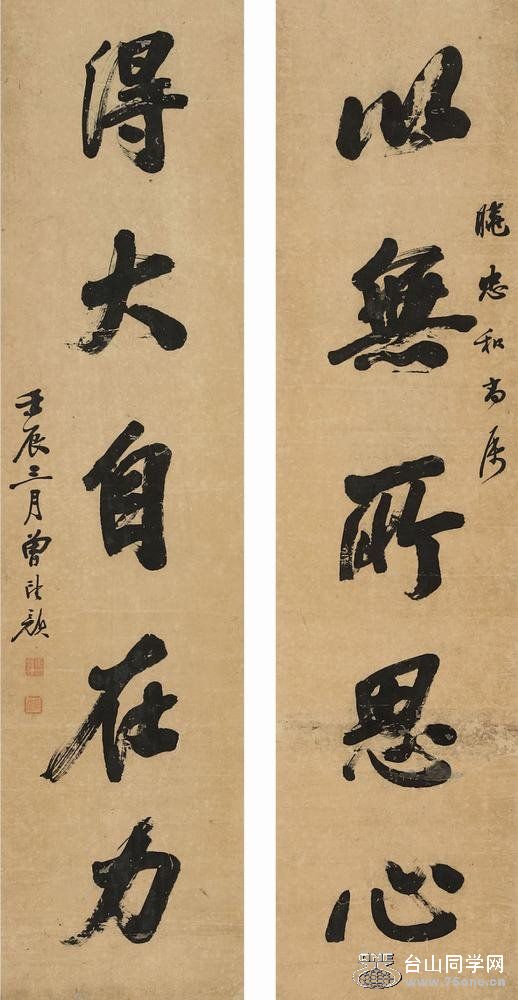 以無所思心
曉忠和尚屬
得大自在力
壬辰三月曾望顏
ONE
台山同学网
www.75one.cn